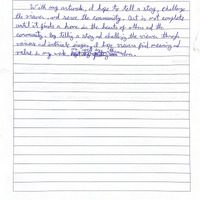 With my artwork, I hope to tell a story, challenge
the viewer, and serve the community. Art is not complete
until it finds a home in the hearts of others and the
community. By telling a story and challing the viewer through
various and intricate images, I hope viewers find meaning and
value in my work